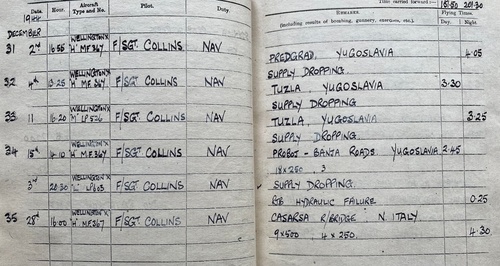 Date Hour. Aircraft Type and No. Pilot. Duty. REMARKS Time carried forward:— 151·50 201·30
1944 (including results of bombing, gunnery, exercises, etc.) Flying Times.
DECEMBER Day. Night.
31 2nd 16·55 WELLINGTON X "H" MF.367 F/SGT. COLLINS NAV PREDGRAD, YUGOSLAVIA 4·05
SUPPLY DROPPING.
32 4th 13·25 WELLINGTON X "H" MF.367 F/SGT. COLLINS NAV TUZLA, YUGOSLAVIA 3·30
SUPPLY DROPPING
33 11 16·20 WELLINGTON X "M" LP526 F/SGT. COLLINS NAV TUZLA, YUGOSLAVIA 3·25
SUPPLY DROPPING.
34 15th WELLINGTON X "H" MF.367 F/SGT. COLLINS NAV BANJA ROADS YUGOSLAVIA 2·45
18 x 250. 3
20·30 WELLINGTON X F/SGT. COLLINS NAV SUPPLY DROPPING.
HYDRAULIC FAILURE 0·25
35 28th 16:00 WELLINGTON X "H" MF.367 F/SGT. COLLINS NAV CASARSA R/BRIDGE N. ITALY.
9 x 500. 4 x 250. 4·30